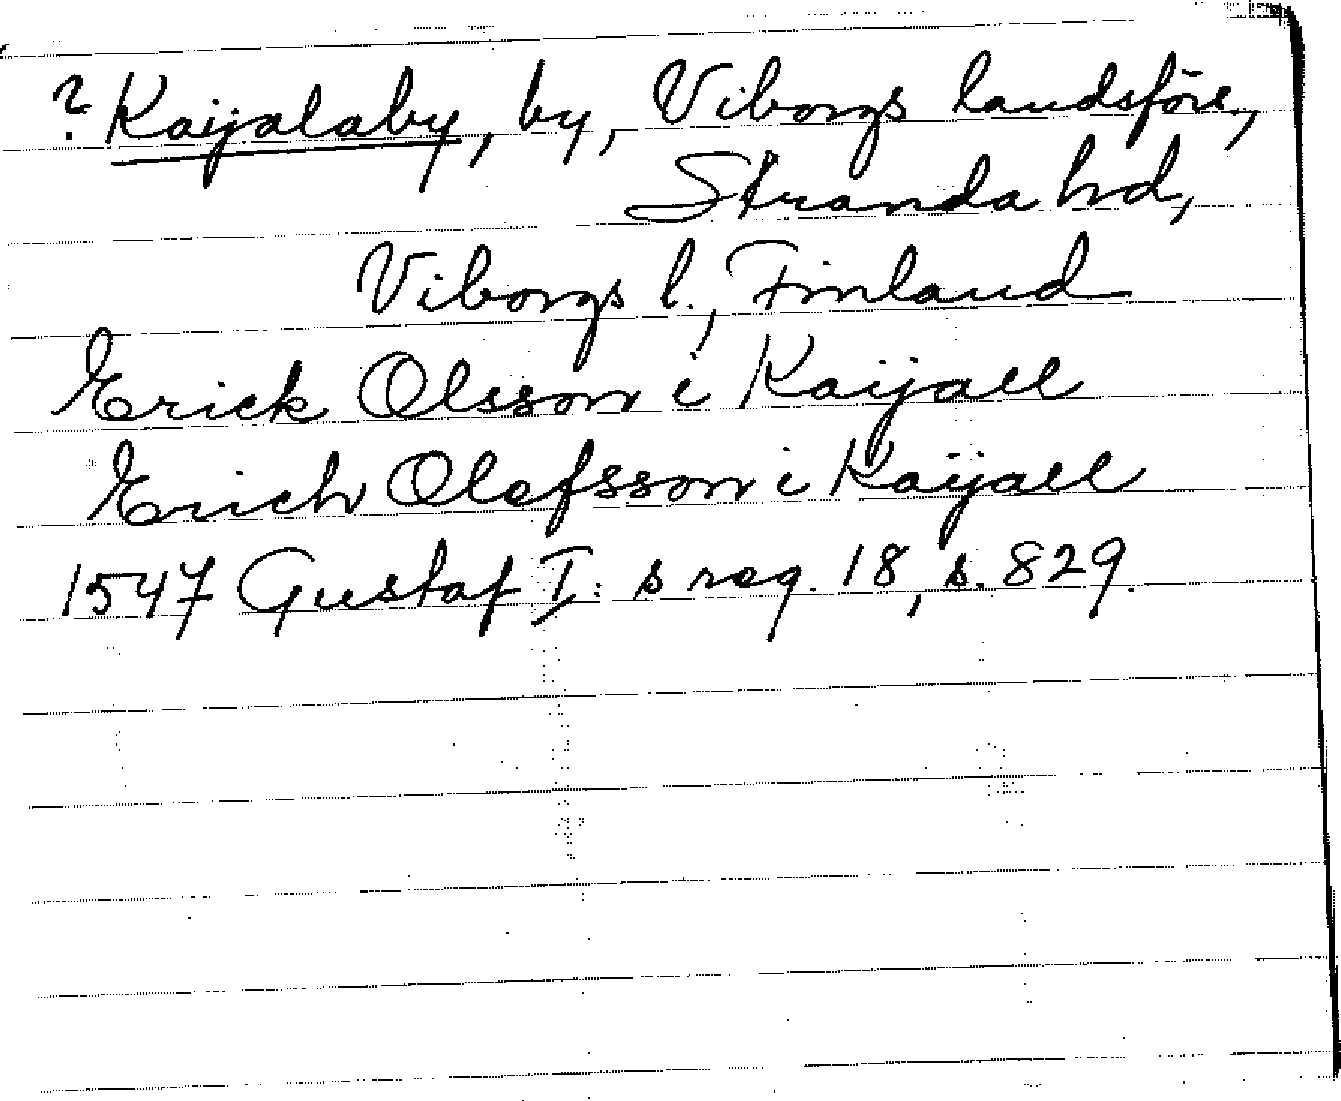 ? Kaijalaby, by, Viborgs landsförs.,
Stranda hrd,
Viborgs l., Finland
Erick Olsson i Kaijall
Erich Olofsson i Kaijall
1547 Gustaf I:s reg. 18, s. 829.